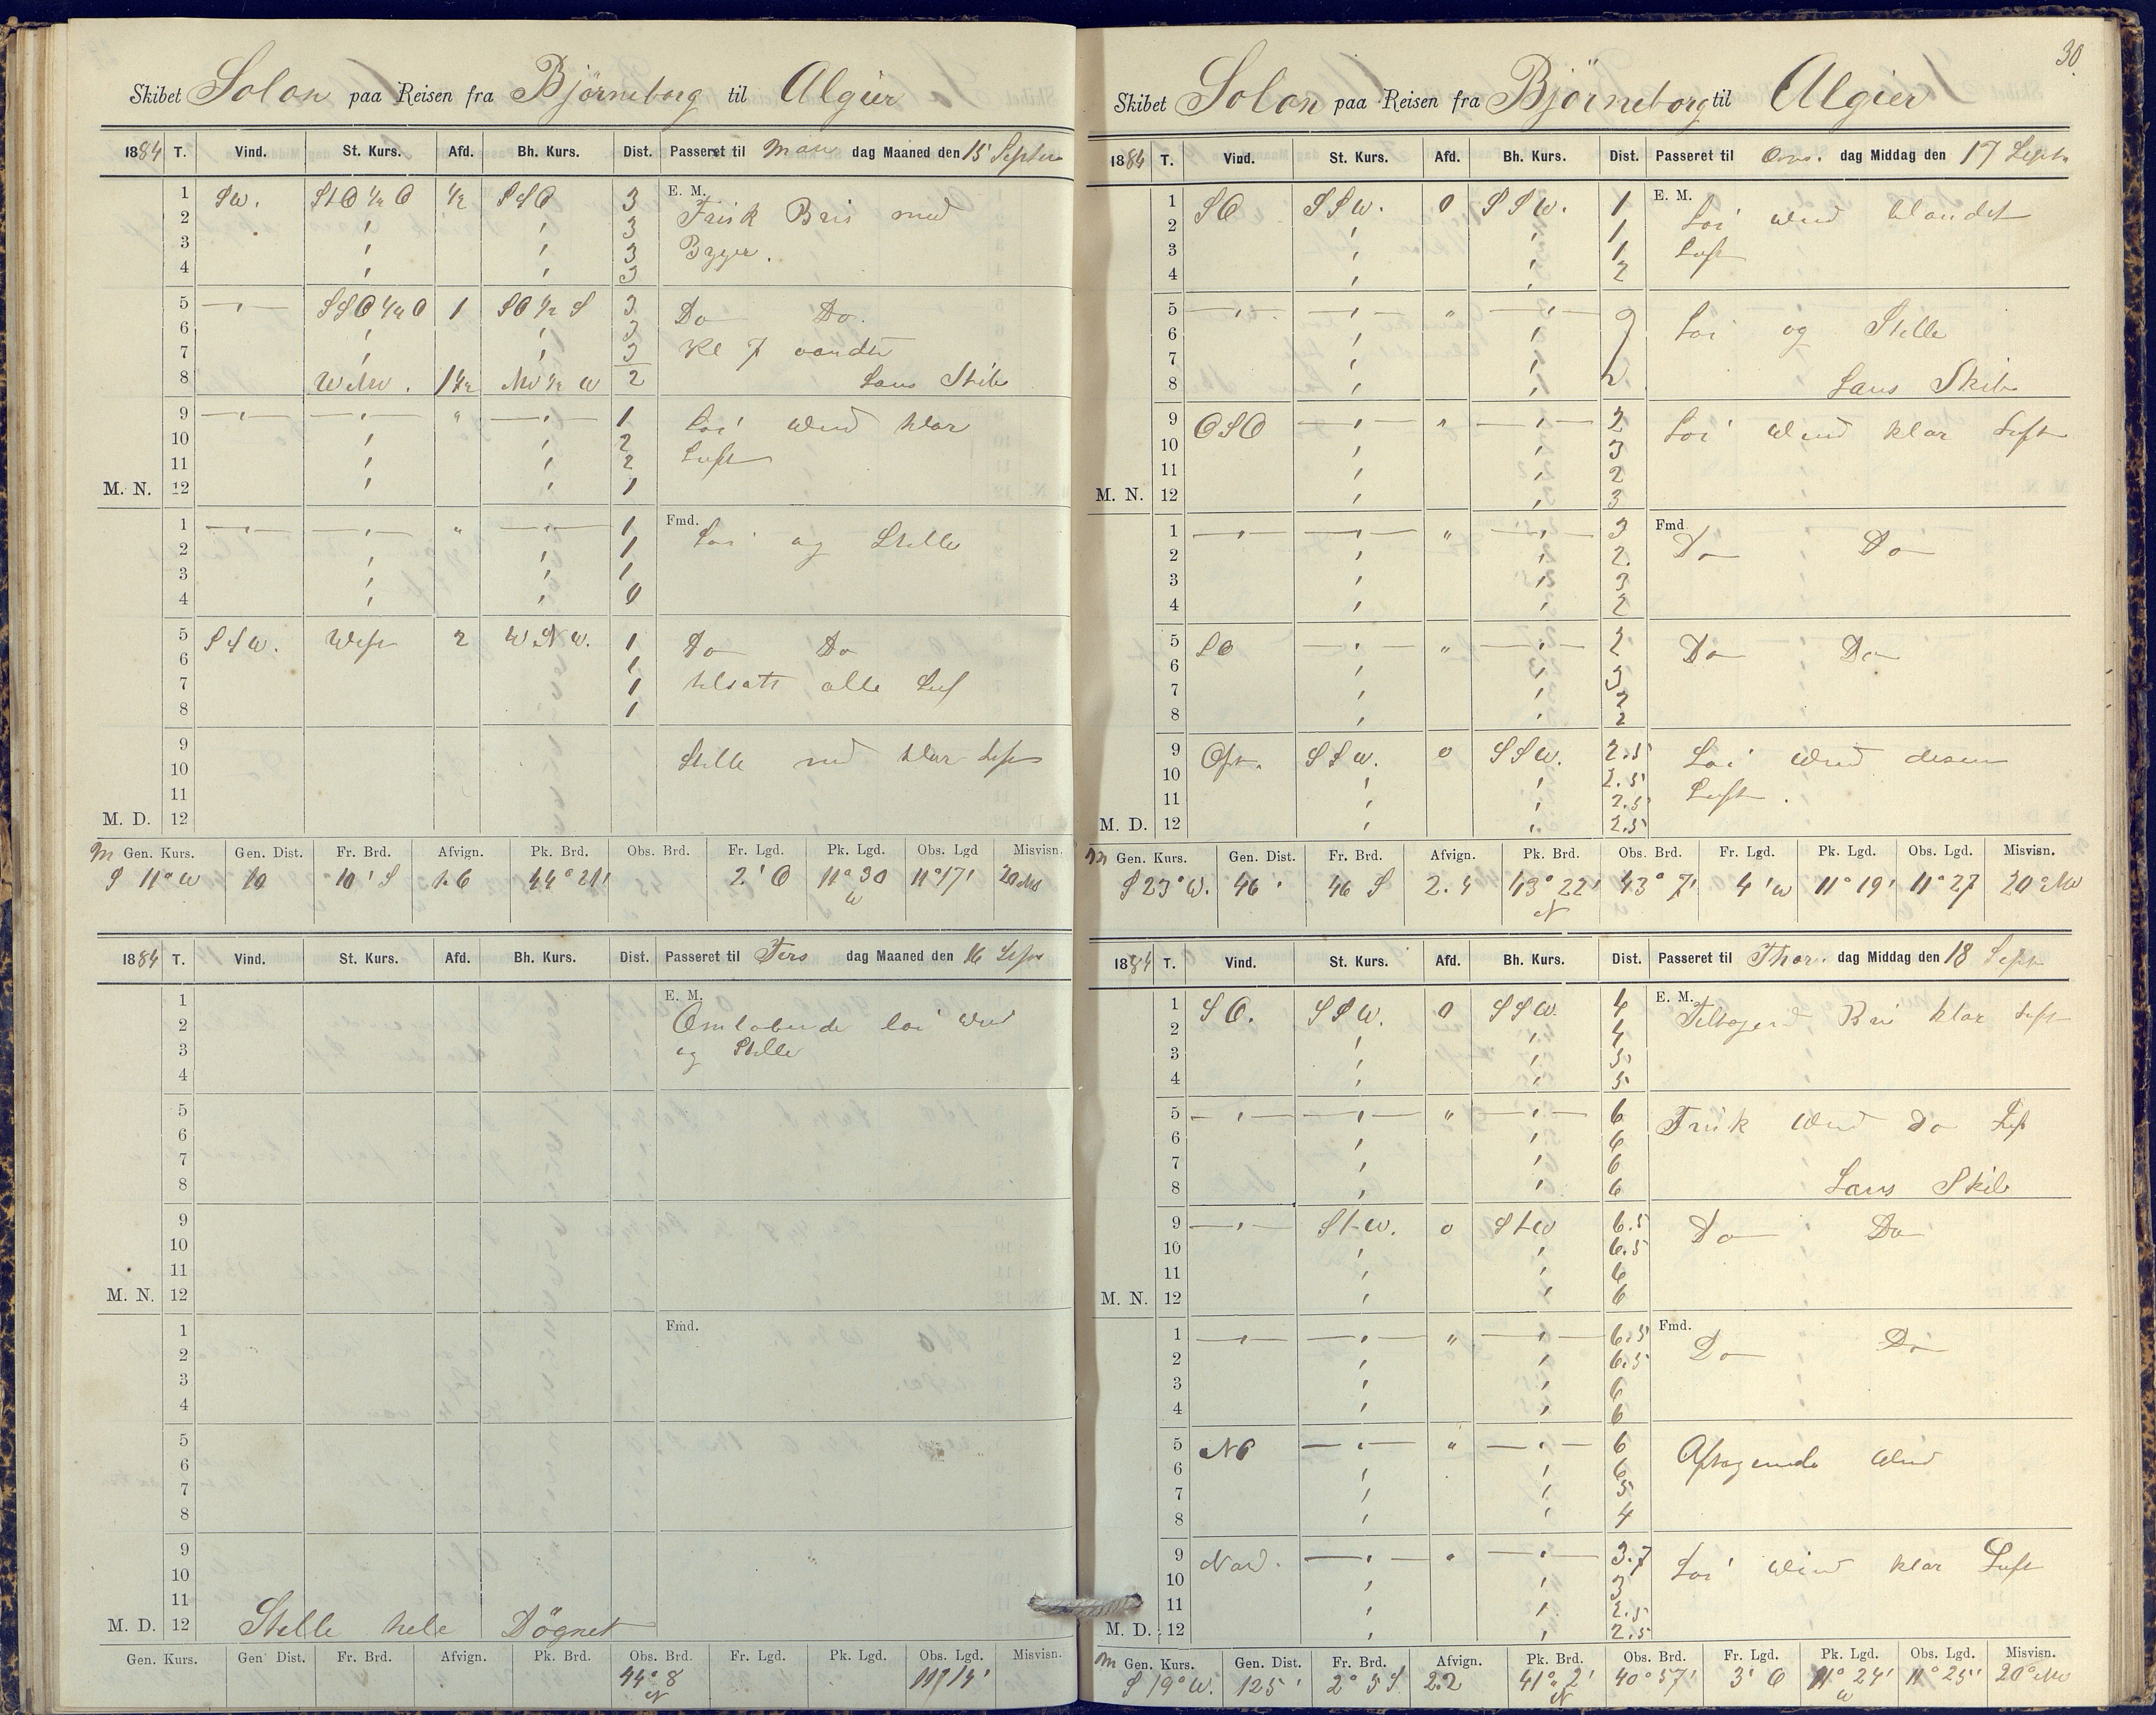 Skibet Solon paa Reisen fra Björneborg til Algier
1884 T. Vind. St. Kurs. Afd. Bh. Kurs. Dist. Passeret til Man dag Maaned den 15 Septbr
E. M.
1 SW. StO ½ O ½ SSO 3 Frisk Bris med
2 3
3 3 Byger.
4 3
5 SSO ½ O 1 SO ½ S 3 Do Do.
6 3
7 3 Kl 7 vendte
8 WNW. 1½ NW ½ W 2 Lans Skib
9 " 1 Löi Wind klar
10 2
11 2 Luft
M. N. 12 1
Fmd.
1 " 1 Löi og Stille
2 1
3 1
4 0
5 SSW. West 2 WNW. 1 Do Do
6 1
7 1 tilsatt alle Seil
8 1
9 Stille med klar Luft
10
11
M. D. 12
M Gen. Kurs. Gen. Dist. Fr. Brd. Afvign. Pk. Brd. Obs. Brd. Fr. Lgd. Pk. Lgd. Obs. Lgd Misvisn.
S 11° W 10 10' S 1.6 44° 21' 2' O 11° 30 W 11° 17' 20 NW
1884 T. Vind. St. Kurs. Afd. Bh. Kurs. Dist. Passeret til Tirs dag Maaned den 16 Septr
E. M.
1 Omlobende löi Wind
2
3 og Stille
4
5
6
7
8
9
10
11
M. N. 12
Fmd.
1
2
3
4
5
6
7
8
9
10
11
M. D. 12 Stille hele Dögnet
Gen. Kurs. Gen Dist. Fr. Brd. Afvign. Pk. Brd. Obs. Brd. Fr. Lgd. Pk. Lgd. Obs. Lgd. Misvisn.
44° 8 N 11° 14'
30
Skibet Solon paa Reisen fra Björneborg til Algier
1884 T. Vind. St. Kurs. Afd. Bh. Kurs. Dist. Passeret til Ons. dag Middag den 17 Septr
E. M.
1 SO SSW. 0 SSW. 1 Löi Wind blandet
2 1
3 1 Luft
4 2
5 " Löi og Stille
6
7
8 2 Lans Skib
9 OSO " 2 Löi Wind klar Luft
10 3
11 2
M. N. 12 3
Fmd
1 " 3 Do Do
2 2
3 3
4 2
5 SO " 2 Do Do
6 3
7 2
8 2
9 Ost. SSW. 0 SSW. 2.5 Löi Wind disen
10 2.5
11 2.5 Luft.
M. D. 12 2.5
M Gen. Kurs. Gen. Dist. Fr. Brd. Afvign. Pk. Brd. Obs. Brd. Fr. Lgd. Pk. Lgd. Obs. Lgd. Misvisn.
S 23° W. 46' 46 S 2.4 43° 22' N 43° 7' 4' W 11° 19' 11° 27 20° NW
1884 T. Vind. St. Kurs. Afd. Bh. Kurs. Dist. Passeret til Thors. dag Middag den 18 Septr
E. M.
1 SO. SSW. 0 SSW 4 Tiltagend Bris klar Luft
2 4
3 5
4 5
5 " 6 Frisk Wind Do Luft
6 6
7 6
8 6 Lans Skib
9 StW. 0 StW 6.5 Do Do
10 6.5
11 6
M. N. 12 6
Fmd.
1 " 6.5 Do Do
2 6.5
3 6
4 6
5 NO " 6 Aftagende Wind
6 6
7 5
8 4
9 Nord. " 3.7 Löi Wind klar Luft
10 3
11 2.5
M. D. 12 2.5
M Gen. Kurs. Gen. Dist. Fr. Brd. Afvign. Pk. Brd. Obs. Brd. Fr. Lgd. Pk. Lgd. Obs. Lgd. Misvisn.
S 19° W. 125' 2° 5 S 2.2 41° 2' N 40° 57' 3' O 11° 24' W 11° 25' 20° NW